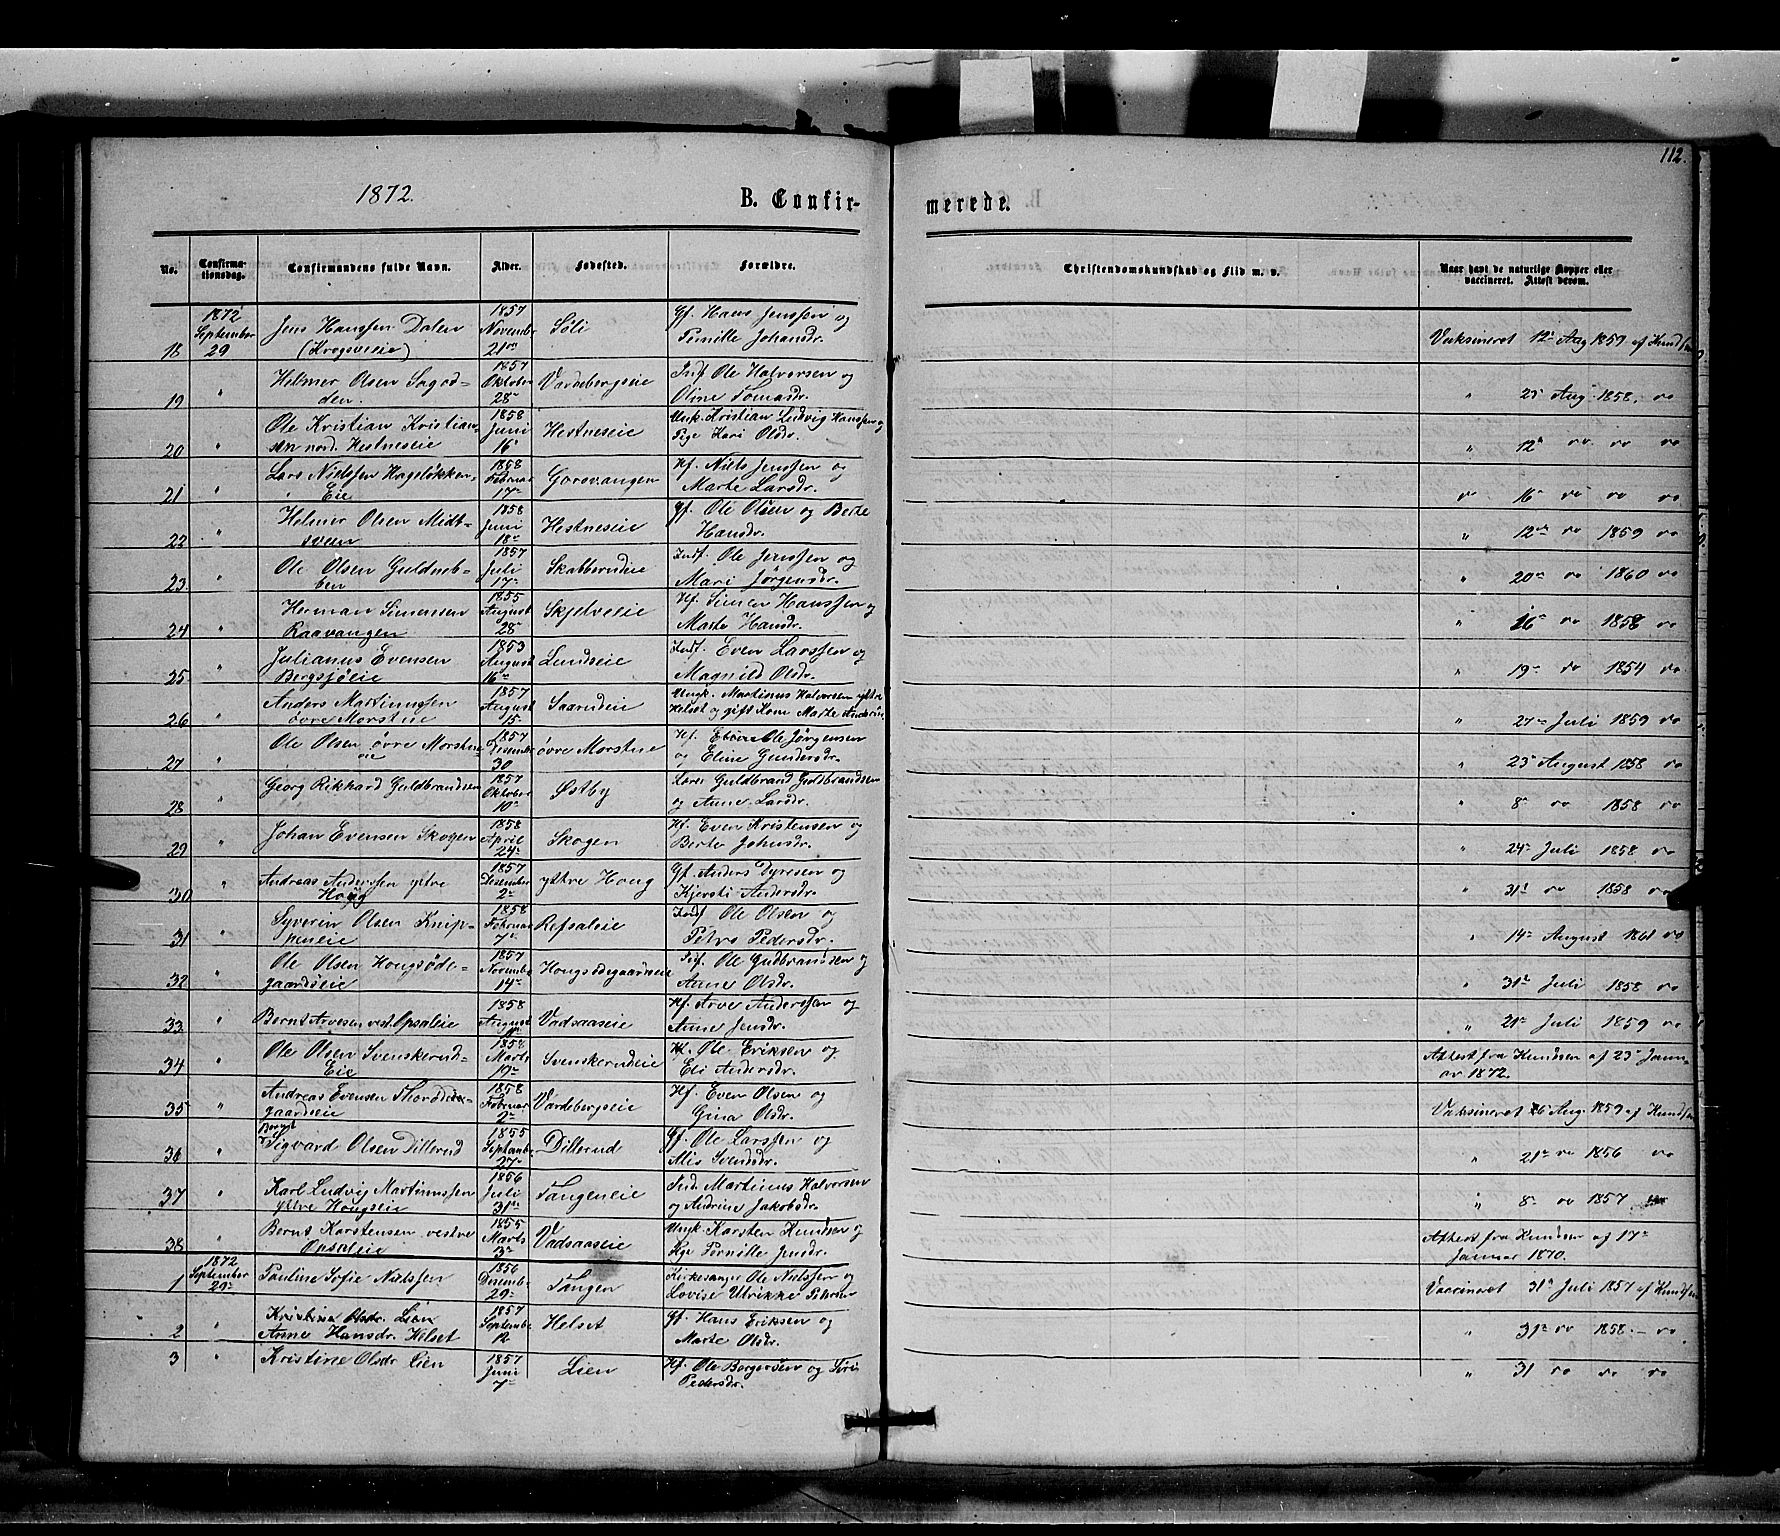 112.
1872.
B. Confirmerede.
No. Confirmationsdag. Confirmandens fulde Navn. Alder. Fødested. Forældre. Christendomskundskab og Flid m. v. Naar havt de naturlige Kopper eller vaccineret. Attest derom.
18 1872 September 29 Jens Hanssen Dalen (Krogsveie) 1857 November 21 Søli Gf. Hans Jenssen og Pernille Johansdr. Vaksineret 12 Aug 1859 af Knudsen
19 " Helmer Olsen Sagodden. 1857 Oktober 28 Vardebergseie Indf. Ole Halvorsen og Oline Tomasdr. " 25 Aug 1858 do
20 " Ole Kristian Kristiansen nord. Hestneseie 1858 Juni 16 Hestneseie Ungk. Kristian Ludvig Hanssen og Pige Kari Olsdr. " 12 do do do
21 " Lars Nielssen Hageløkken Eie 1858 Februar 17 Gorovangen Hf. Niels Jenssen og Marte Larsdr. " 16 do do do
22 " Helmer Olsen Midtsveen 1858 Juni 18 Hestneseie Gf. Ole Olsen og Berte Hansdr. " 12 do 1859 do
23 " Ole Olsen Guldnebben 1857 Juli 17 Skabberudeie Indf. Ole Jenssen og Mari Jørgensdr. " 20 do 1860 do
24 " Herman Simensen Raavangen 1855 August 28 Skjelveeie Hf. Simen Hanssen og Marte Hansdr. " 16 do 1858 do
25 " Julianus Evensen Bergsjøeie 1853 August 16 Lundseie Indf. Even Larssen og Magnild Olsdr. " 19 do 1854 do
26 " Anders Martinussen øvre Morstueie 1857 August 15 Saarudeie Ungk. Martinus Halvorsen ytre Helset og gift Kone Marte " 27 Juli 1859 do
27 " Ole Olsen øvre Morstueie 1857 Desember 30 øvre Morstue Hf. Ole Jørgensen og Eline Gundersdr. " 23 August 1858 do
28 " Georg Rikhard Guldbrandsen 1857 Oktober 10 Østby Guldbrand Guldbrandsen og Anne Larsdr. " 8 do 1858 do
29 " Johan Evensen Skogen 1858 April 24 Skogen Hf. Even Kristensen og Berte Johnsdr. " 24 Juli 1858 do
30 " Andreas Anderssen ytre Houg 1857 Desember 2 ytre Houg Gf. Anders Dyresen og Kjersti Andersdr. " 31 do 1858 do
31 " Syverin Olsen Knippeneie 1858 Februar 7 Refsaleie Indf. Ole Olsen og Petro Pedersdr. " 14 August 1861 do
32 " Ole Olsen Hougsødegaardseie 1857 November 14 Hougsødegaardseie Indf. Ole Gudbrandsen og Anne Olsdr. " 31 Juli 1858 do
33 " Bernt Arvesen vest. Opsaleie 1858 August Vadsaaseie Hf. Arve Anderssen og Anne Jensdr. " 21 Juli 1859 do
34 " Ole Olsen Svenskerud Eie 1858 Marts 17 Svenskerudeie Hf. Ole Eriksen og Eli Andersdr. Attest fra Knudsen af 23 Januar 1872.
35 " Andreas Evensen Thorødegaardseie 1858 Februar 2 Vardebergseie Hf. Even Olsen og Gina Olsdr. Vaksineret 26 Aug. 1859 af Knudsen
36 " Bernt Sigvard Olsen Dillerud 1855 September 27 Dillerud Gf. Ole Larssen og Alis Svendsdr. " 21 do 1856 do
37 " Karl Ludvig Martinussen ytre Hougseie 1856 Juli 31 Tangeneie Ind. Martinus Halvorsen og Andrine Jakobsdr. " 8 do 1857
38 " Bernt Karstensen vestre Opsaleie 1855 Marts 3 Vadsaaseie Ungk. Karsten Knudsen og Pige Pernille Jensdr. Attest fra Knudsen af 17 Januar 1870.
1 1872 September 29 Pauline Sofie Nielssen 1856 Desember 29 Tangen Kirkesanger Ole Nielssen og Lovise Ulrikke Petersen Vaccineret 31 Juli 1857 af Knudsen
2 " Kristina Olsdr. Lien Anne Hansdr. Helset 1857 September 12 Helset Gf. Hans Eriksen og Marte Olsdr. " 31 do 1858 do
3 " Kristine Olsdr Lien 1857 Juni 7 Lien Hf. Ole Borgersen og Siri Pedersdr. " 31 do do do